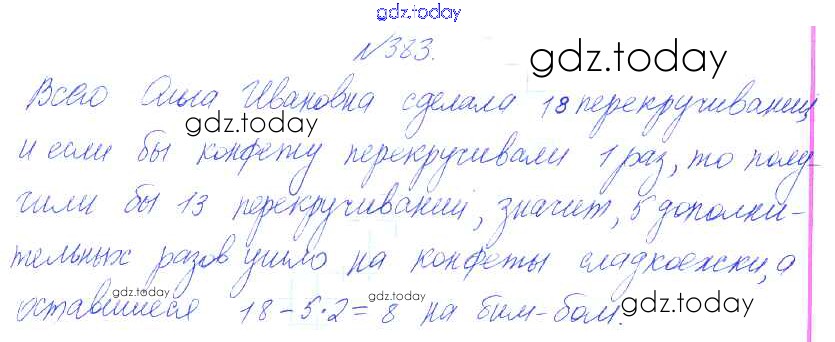 gdz.today
№383.
gdz.today
Всего Ольга Ивановна сделала 18 перекручиваний,
gdz.today
и если бы конфету перекручивали 1 раз, то полу-
чили бы 13 перекручиваний, значит, 5 дополни-
тельных разов ушло на конфеты сладкоежки, а
gdz.today gdz.today gdz.today
оставшиеся 18-5·2=8 на бим-бом.